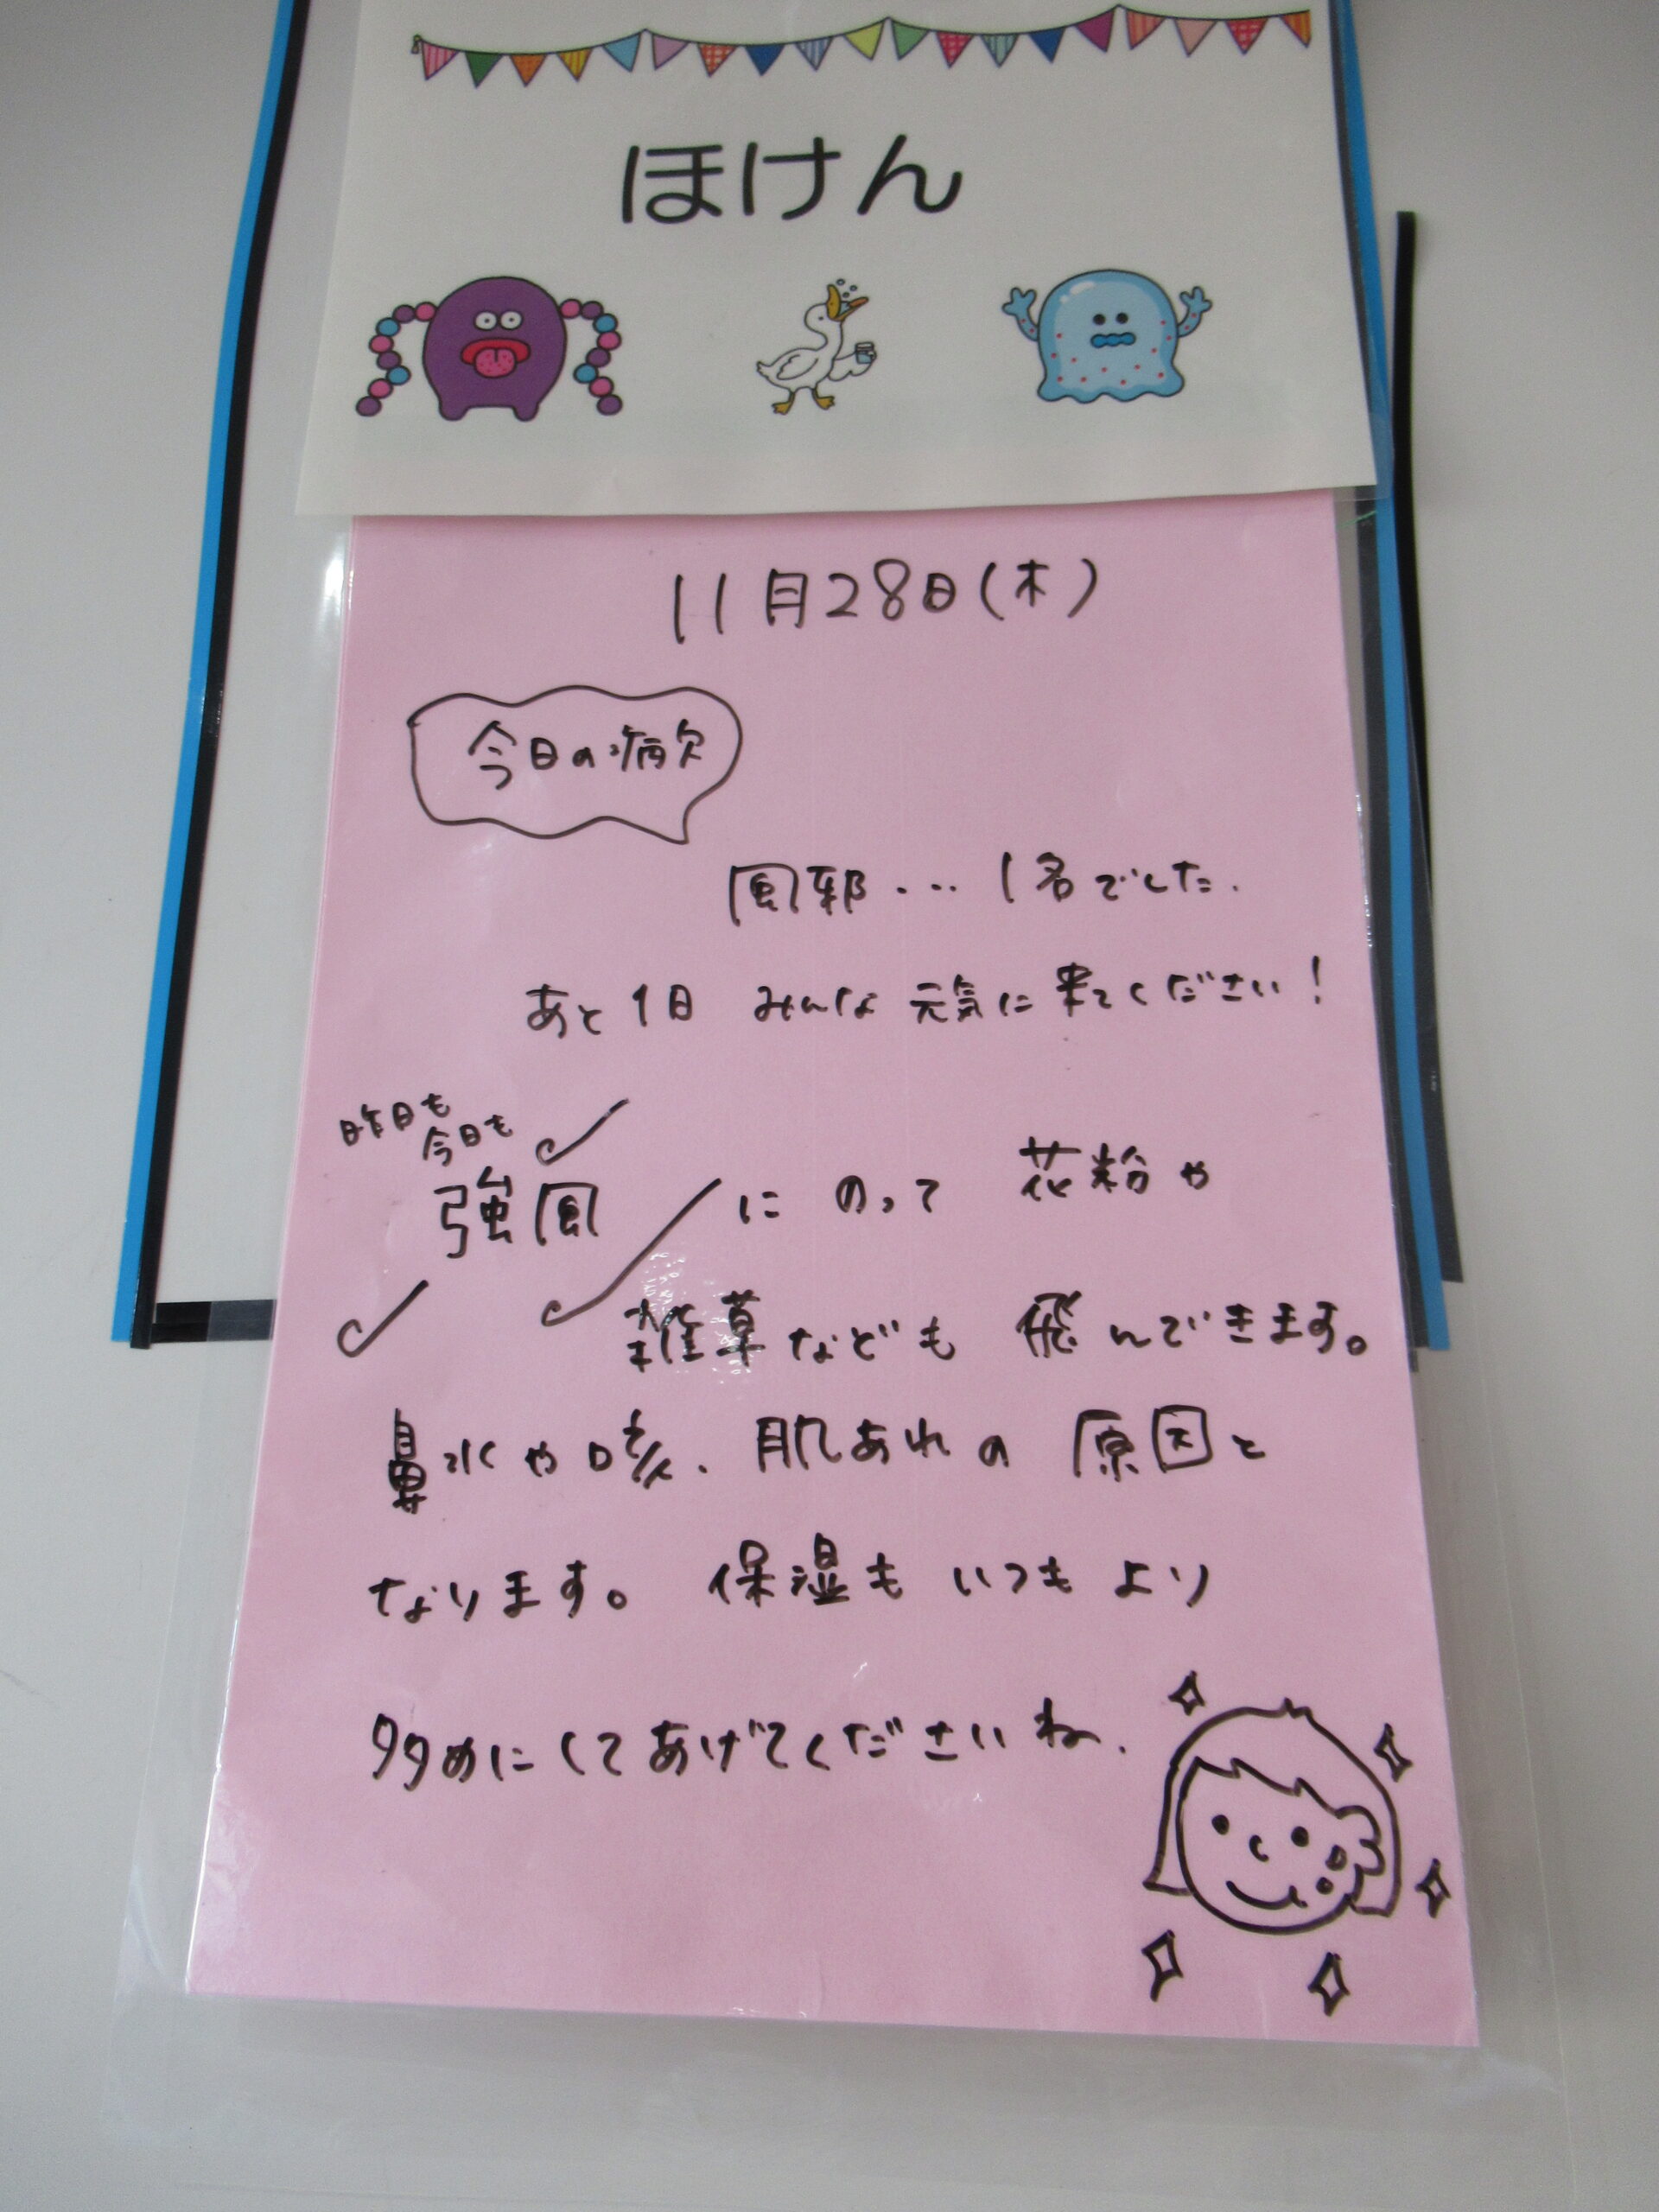 ほけん
11月28日(木)
今日の病欠
風邪・・・1名でした.
あと1日 みんな元気に来てください!
昨日も
今日も
強風 にのって 花粉や
雑草なども 飛んできます。
鼻水や咳、肌あれの 原因と
なります。 保湿も いつもより
多めにしてあげてくださいね.